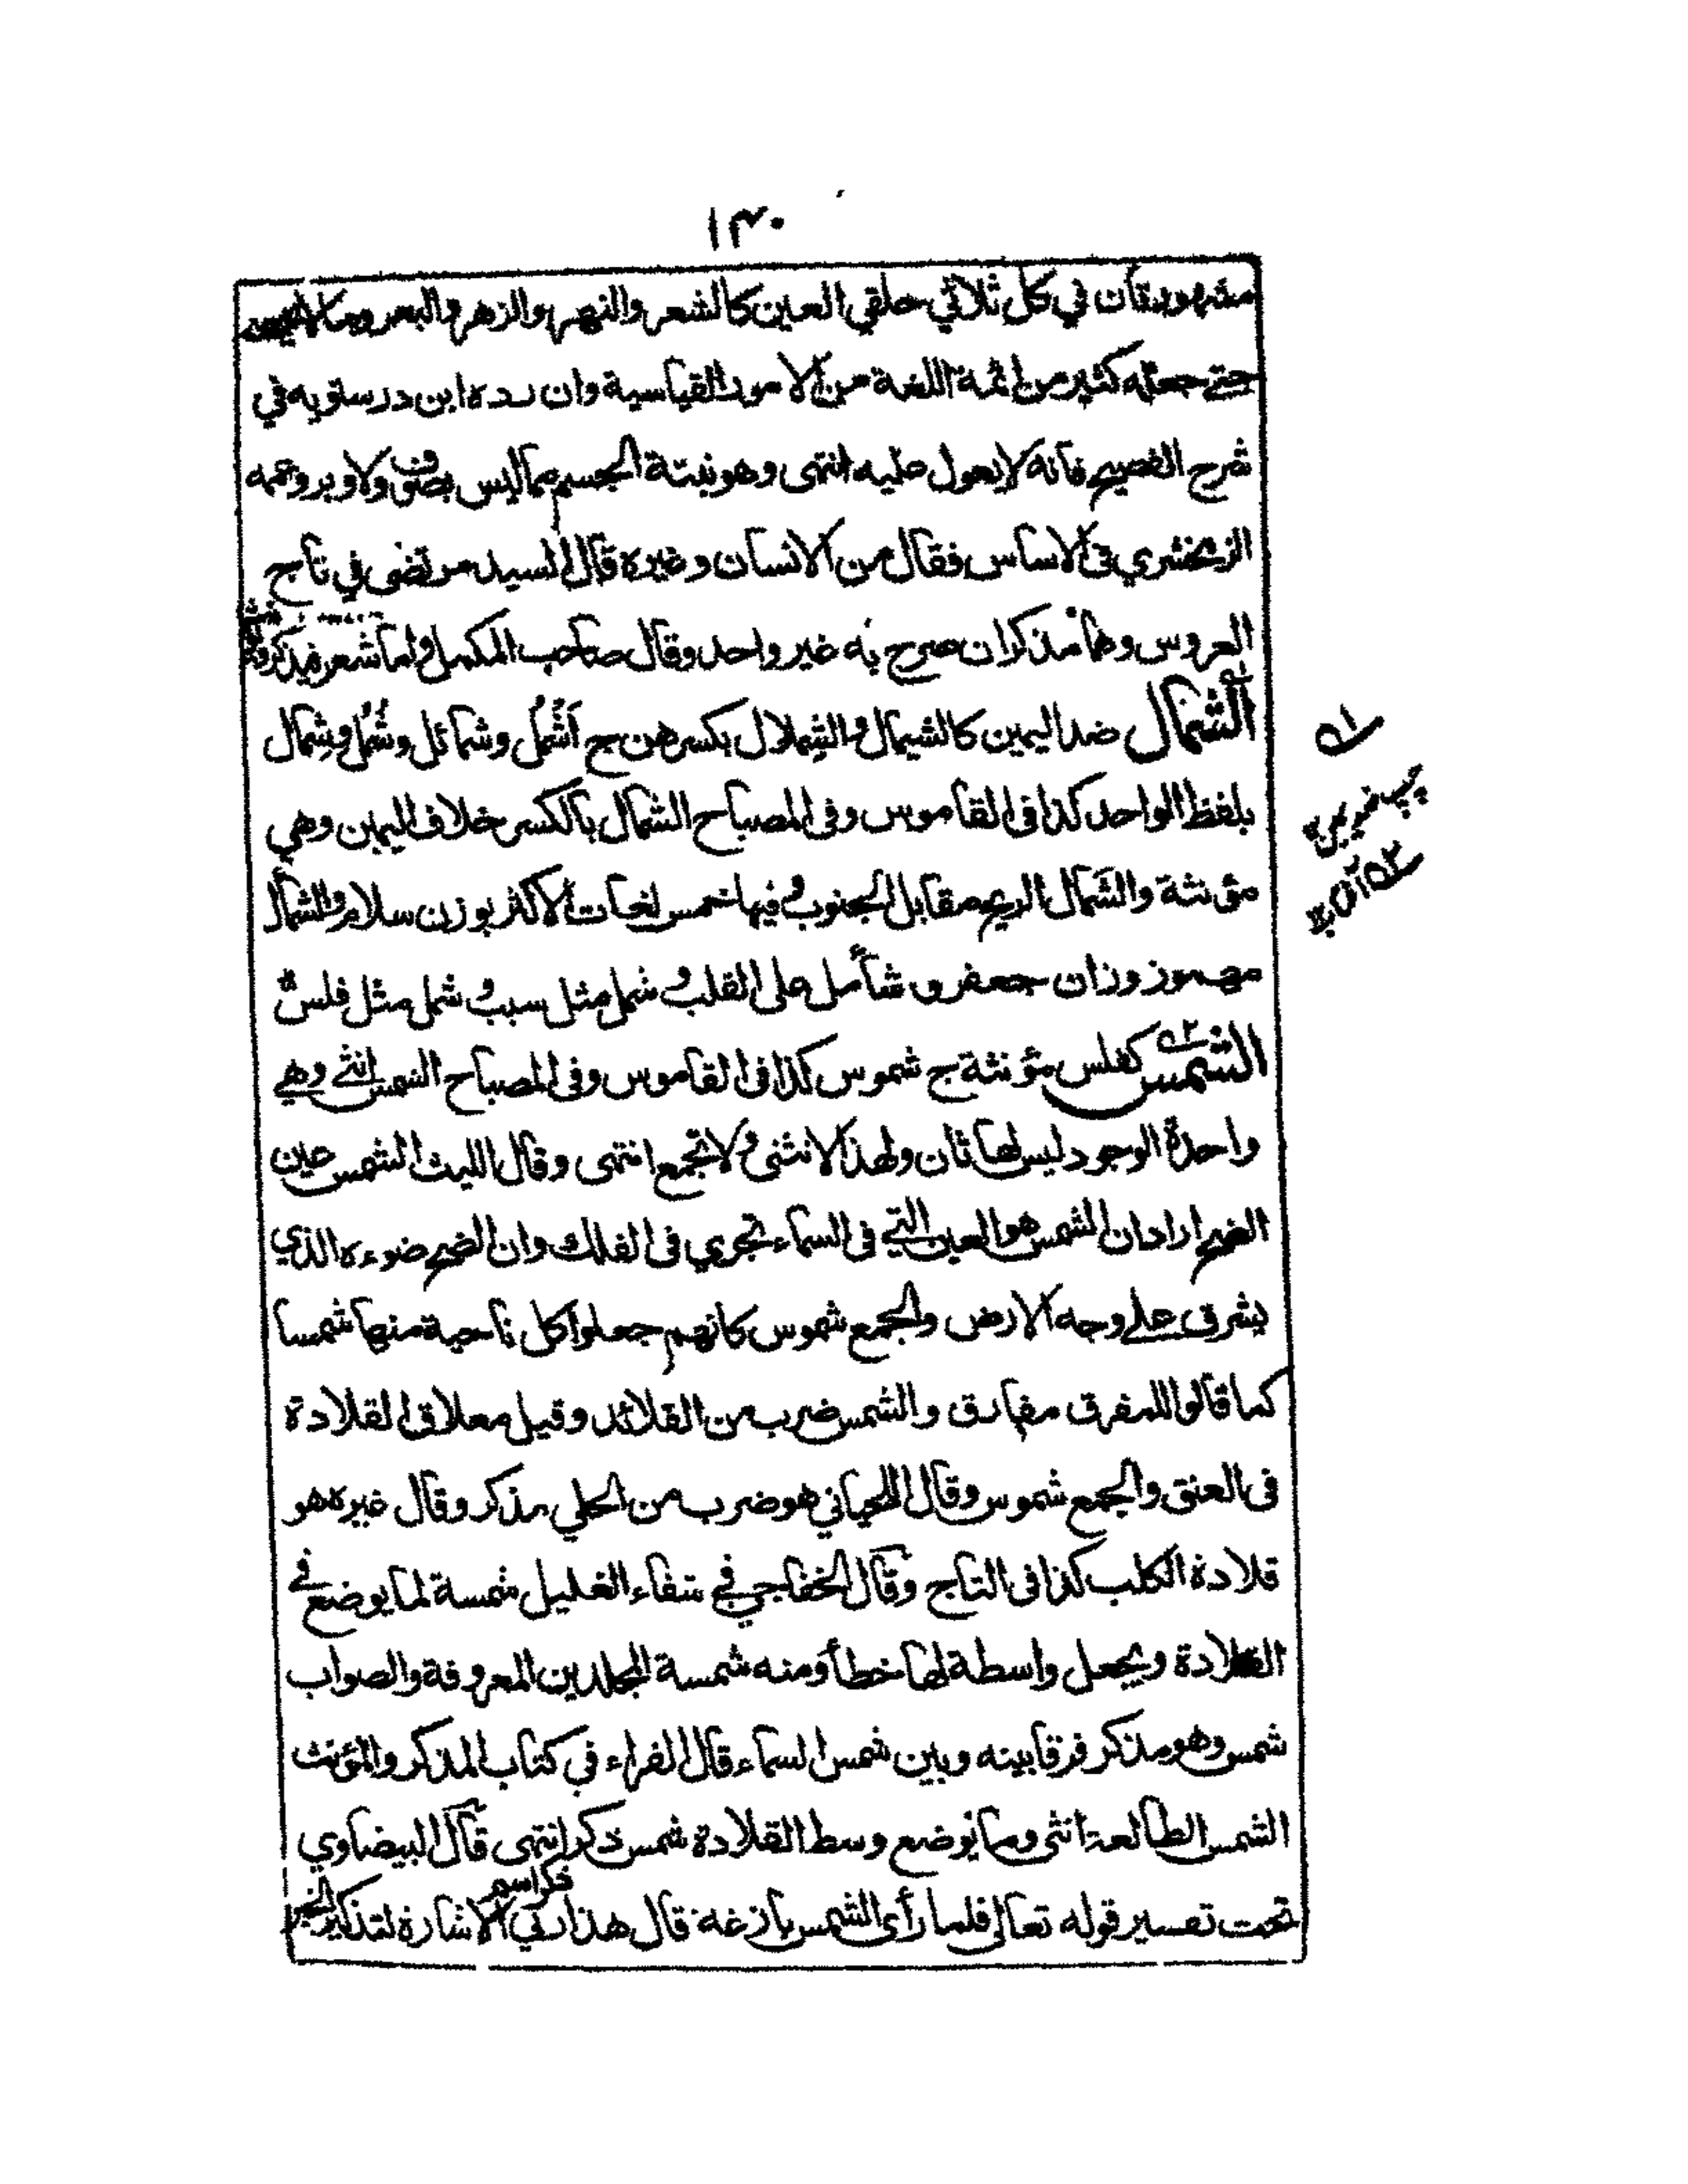 ١٣٠
مشهورتان في كل ثلاثي حلقي العين كالشعر والنهر والزهر والبعر وما
حتے جعله كثير من ائمة اللغة من الامور القياسية وان رده ابن درستويه في
شرح الفصيح فانه لا يعول عليه انتهى وهو نبتة الجسم مما ليس بصوف ولا وبر وعممه
الزمخشري في الاساس فقال من الانسان وغيره قال السيد مرتضى في تاج
العروس وهما مذكران صرح به غير واحد وقال صاحب المكمل واما شعر فيذكر
الشمال ضد اليمين كالشيمال والشملال بكسرهن ج أشمُل وشمائل وشُمُل وشمال
بلفظ الواحد كذا في القاموس وفي المصباح الشمال بالكسر خلاف اليمين وهي
مؤنثة والشَمال الريح مقابل الجنوب وفيها خمس لغات الاكثر بوزن سلام والشمأل
مهموز وزان جعفر و شأمل على القلب و شمل مثل سبب و شمل مثل فلس
الشمس كفلس مؤنثة ج شموس كذا في القاموس وفي المصباح الشمس انثے وهي
واحدة الوجود ليس لها ثان ولهذا لا تثنى ولا تجمع انتهى وقال الليث الشمس عين
الضح اراد ان الشمس هو العين التي في السماء تجري في الفلك وان الضح ضوءه الذي
يشرق علے وجه الارض والجمع شموس كانهم جعلوا كل ناحية منها شمسا
كما قالوا للمفرق مفارق والشمس ضرب من القلائد وقيل معلاق القلادة
في العنق والجمع شموس وقال اللحياني هو ضرب من الحلي مذكر وقال غيره هو
قلادة الكلب كذا في التاج وقال الخفاجي في شفاء الغليل شمسة لما يوضع في
القلادة ويجعل واسطة لها خطأ ومنه شمسة المجلدين المعروفة والصواب
شمس وهو مذكر فرقا بينه وبين شمس السماء قال الفراء في كتاب المذكر والمؤنث
الشمس الطالعة انثى وما يوضع وسط القلادة شمس ذكر انتهى قال البيضاوي
تحت تفسير قوله تعالى فلما رأى الشمس بازغة قال هذا ربي ذكر اسم الاشارة لتذكير الخبر